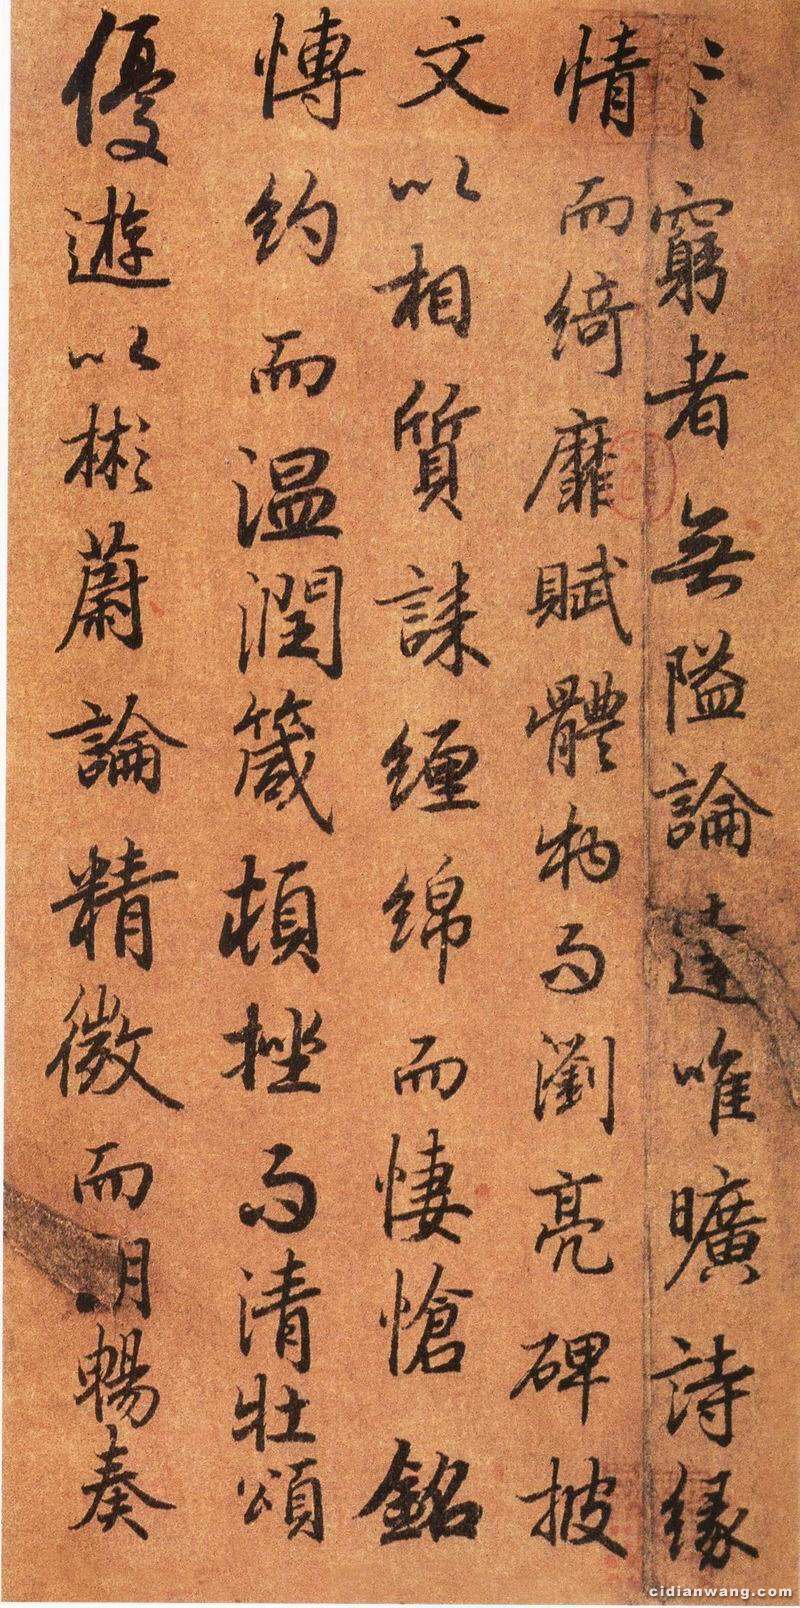 言窮者無隘論達唯曠詩緣
情而綺靡賦體物而瀏亮碑披
文以相質誄纏綿而悽愴銘
愽約而温潤箴頓挫而清壯頌
優遊以彬蔚論精微而朗暢奏
cidianwang.com